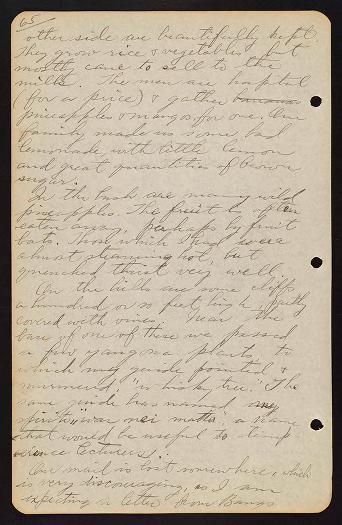 65
other side are beautifully kept.
They grow rice & vegetables, but
mostly cane to sell to the
mills. The men are hospitable
(for a price) & gather bananas
pineapples & mangos for one. One
family made us some bad
lemonade with little lemon
and great quantities of brown
sugar.
In the bush are many wild
pineapples. The fruit is often
eaten away, perhaps by fruit
bats. Those which I had were
almost steaming hot, but
quenched thirst very well.
On the hills are some cliffs
a hundred or so feet high, partly
covered with vines. Near the
base of one of these we passed
a few yangona plants, to
which my guide pointed &
murmured, "whisky tree." The
same guide has named my
spirits, "wai mei mate", a name
that would be useful to temp-
erance lecturers!
Our mail is lost somewhere, which
is very discouraging, as I am
expecting a letter from Bangs